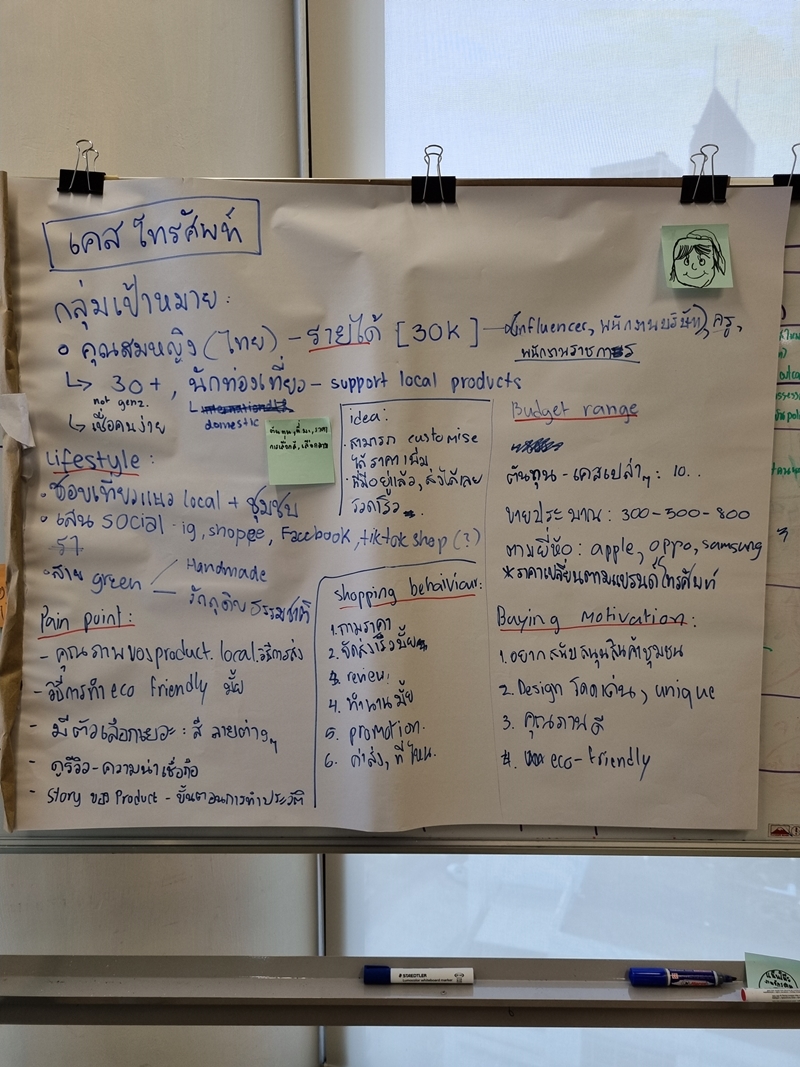 เคส โทรศัพท์
กลุ่มเป้าหมาย:
คุณสมหญิง (ไทย) - รายได้ [30K] → influencer, พนักงานบริษัท, ครู,
พนักงานราชการ
↳ 30+, นักท่องเที่ยว - support local products
not genz.
domestic
↳ เชื่อคนง่าย
Lifestyle:
ชอบเที่ยวแนว local + ชุมชน
เล่น social - ig, shopee, Facebook, tiktok shop (?)
สาย green
Handmade
วัตถุดิบธรรมชาติ
Pain point:
- คุณภาพของ product. local. วิธีการส่ง
- วิธีการทำ eco friendly มั้ย
- มีตัวเลือกเยอะ: สี ลายต่างๆ
- ดูรีวิว - ความน่าเชื่อถือ
- Story ของ Product - ขั้นตอนการทำประวัติ
idea:
สามารถ customise
ได้ ราคาเพิ่ม
ที่มีอยู่แล้ว, ส่งได้เลย
รวดเร็ว
shopping behaiviour:
1. ถามราคา
2. จัดส่งเร็วมั้ย
3. review.
4. ทำนานมั้ย
5. promotion.
6. ค่าส่ง, ที่ไหน.
Budget range
ต้นทุน - เคสเปล่าๆ: 10..
ขายประมาณ: 300-500-800
ตามยี่ห้อ: apple, oppo, samsung
*ราคาเปลี่ยนตามแบรนด์โทรศัพท์
Buying Motivation:
1. อยากสนับสนุนสินค้าชุมชน
2. Design โดดเด่น, unique
3. คุณภาพดี
4. eco-friendly
STAEDTLER